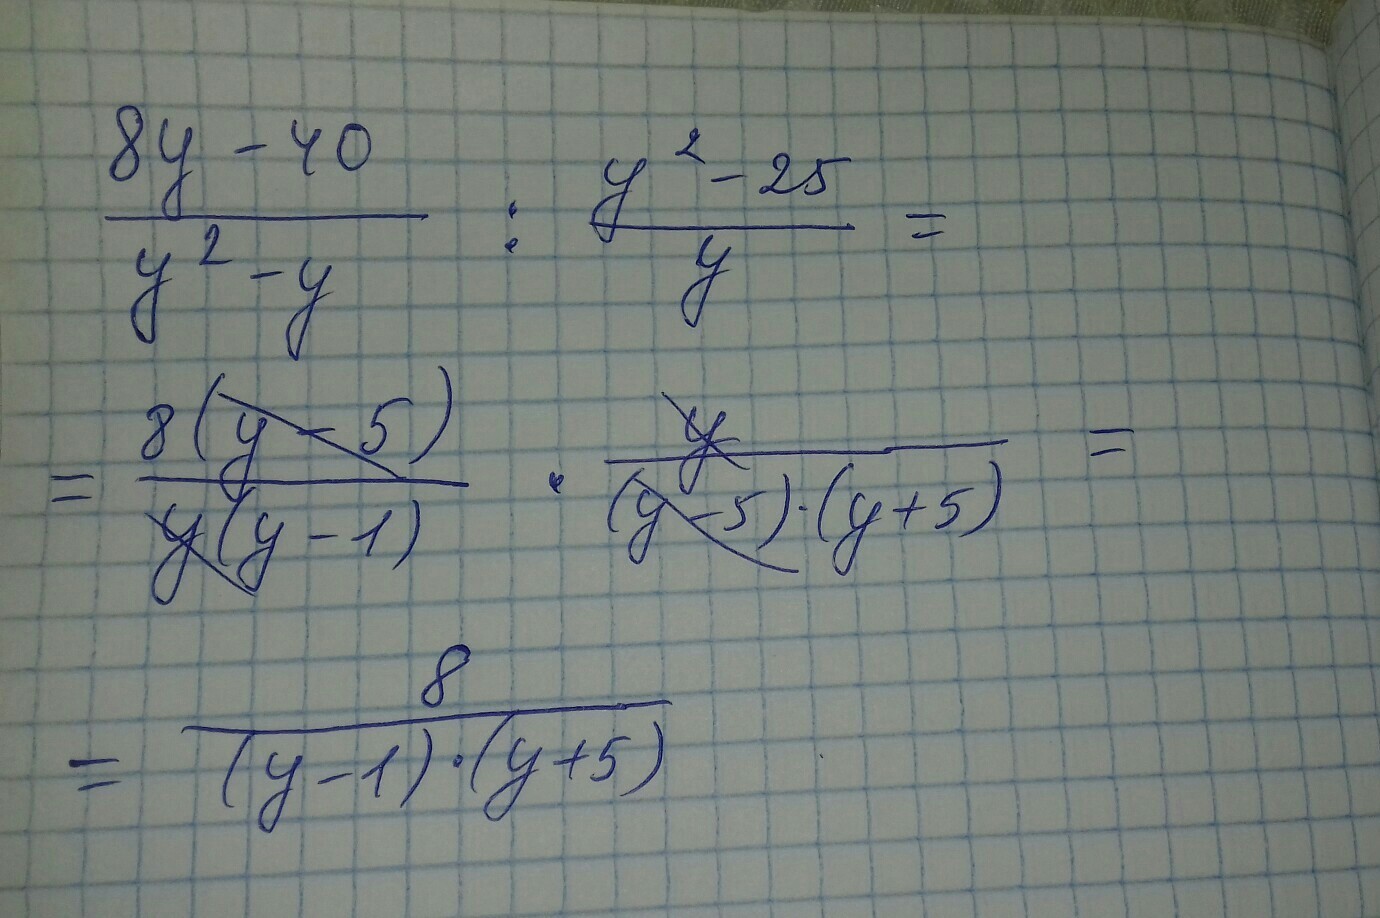 (8y - 40)/(y² - y) : (y² - 25)/y =
= 8(y - 5)/y(y - 1) · y/(y - 5)·(y + 5) =
= 8/(y - 1)·(y + 5)